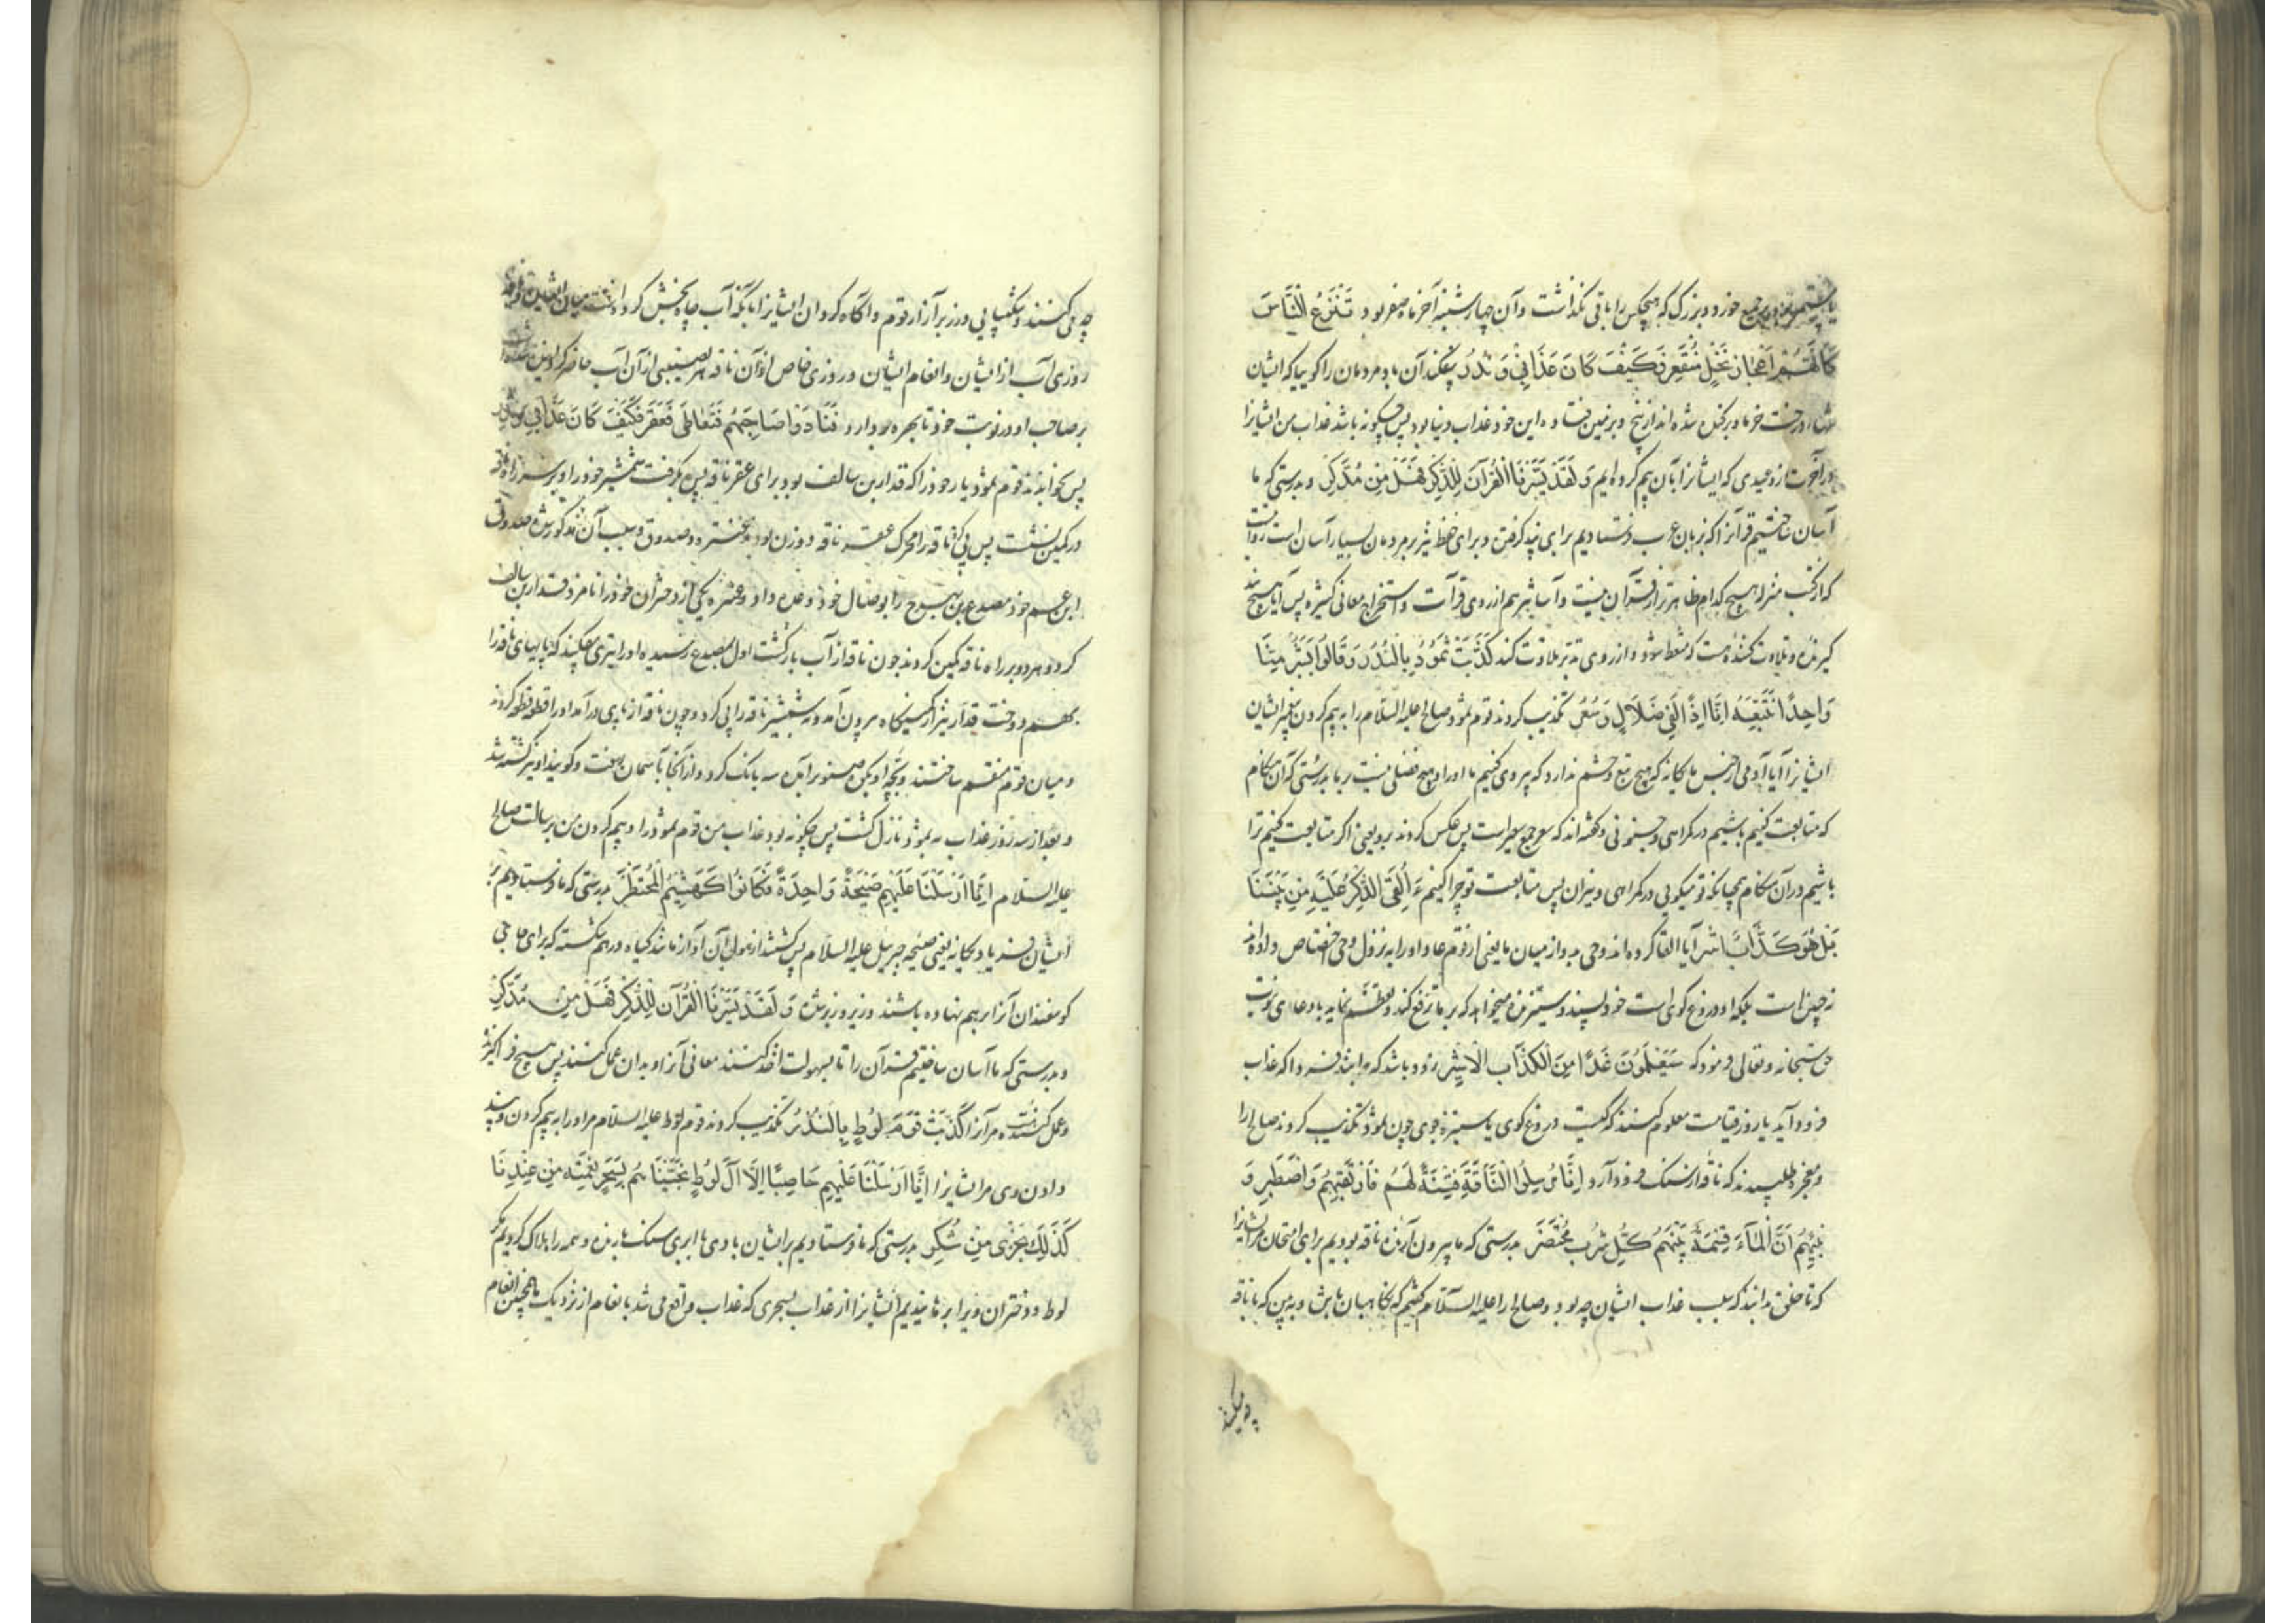 یا مستمر بود بر جمیع خورد و بزرگ که هیچکس را باقی نگذاشت و آن چهارشنبه آخر ماه صفر بود تَنْزِعُ النَّاسَ
كَأَنَّهُمْ أَعْجَازُ نَخْلٍ مُنْقَعِرٍ فَكَيْفَ كَانَ عَذَابِي وَنُذُرِ بیفکند آن باد مردمان را گوییا که ایشان
درخت خرما برکنده شده اند از بیخ و بر زمین فتاده این خود عذاب دنیا بود پس چگونه باشد عذاب من ایشانرا
در آخرت از وعیدی که ایشانرا بآن بیم کرده ایم وَلَقَدْ يَسَّرْنَا الْقُرْآنَ لِلذِّكْرِ فَهَلْ مِنْ مُدَّكِرٍ و بدرستی که ما
آسان ساختیم قرآنرا که بزبان عرب فرستادیم برای پند گرفتن و برای حفظ نیز بر مردمان بسیار آسان است
که از کتب منزله هیچ کدام ظاهرتر از قرآن نیست و آسانتر هم از روی قرآت و استخراج معانی کثیره پس آیا هیچ
گیرنده و تلاوت کننده هست که متعظ شود و از روی تدبر تلاوت کند كَذَّبَتْ ثَمُودُ بِالنُّذُرِ وَقَالُوا أَبَشَرًا مِنَّا
وَاحِدًا نَتَّبِعُهُ إِنَّا إِذًا لَفِي ضَلَالٍ وَسُعُرٍ تکذیب کردند قوم ثمود صالح علیه السلام را به بیم کردن پیغمبر ایشان
ایشانرا آیا آدمی از جنس ما یگانه که هیچ تبع و حشم ندارد که پیروی کنیم ما او را و هیچ فضلی نیست بر ما بدرستی که آن هنگام
که متابعت کنیم باشیم در گمراهی و جنونی و گفته اند که سعر جمع سعیر است پس عکس کردند برو یعنی اگر متابعت کنیم ترا
باشیم در آن هنگام همچنانکه تو میگویی در گمراهی و نیران پس متابعت تو چرا کنیم ءَأُلْقِيَ الذِّكْرُ عَلَيْهِ مِنْ بَيْنِنَا
بَلْ هُوَ كَذَّابٌ أَشِرٌ آیا القا کرده اند وحی برو از میان ما یعنی از قوم عاد او را به نزول وحی اختصاص داده اند
نه چنین است بلکه او دروغ گوی است خودپسند و ستیزنده میخواهد که بر ما ترفع کند و تعظم نماید با دعای نبوت
حق سبحانه و تعالی فرمود که سَيَعْلَمُونَ غَدًا مَنِ الْكَذَّابُ الْأَشِرُ زود باشد که بدانند فردا که عذاب
فرود آید یا روز قیامت معلوم کنند که کیست دروغ گوی یا ستیزه جوی چون ثمود تکذیب کردند صالح را
و معجزه طلبیدند که ناقه از سنگ فرود آرد إِنَّا مُرْسِلُوا النَّاقَةِ فِتْنَةً لَهُمْ فَارْتَقِبْهُمْ وَاصْطَبِرْ وَ
نَبِّئْهُمْ أَنَّ الْمَاءَ قِسْمَةٌ بَيْنَهُمْ كُلُّ شِرْبٍ مُحْتَضَرٌ بدرستی که ما بیرون آرنده ناقه بودیم برای امتحان مر ایشانرا
که تا خلق بدانند که سبب عذاب ایشان چه بود و صالح را علیه السلام گفتیم که نگاهبان باش و به بین که با ناقه
چه میکنند
چه می کنند و شکیبایی ورز بر آزار قوم و آگاه گردان ایشانرا بآنکه آب چاه بخش کرده است میان ایشان و ناقه
روزی آب از ایشان و انعام ایشان و روزی خاص از آن ناقه هر نصیبی از آن آب حاضر کرده شده است
بر صاحب او در نوبت خود تا بهره بردارد فَنَادَوْا صَاحِبَهُمْ فَتَعَاطَى فَعَقَرَ فَكَيْفَ كَانَ عَذَابِي وَنُذُرِ
پس بخواندند قوم ثمود یار خود را که قدار بن سالف بود برای عقر ناقه پس بگرفت شمشیر خود را و بر سر راه ناقه
در کمین نشست پس پی کرد ناقه را محرک عقر ناقه دو زن بود عنیزه و صدوق و سبب آن مذکور شد صدوق
ابن عم خود مصدع بن بهرج را بوصال خود وعده داد و عنیزه یکی از دختران خود را نامزد قدار بن سالف
کرد و هر دو بر راه ناقه کمین کردند چون ناقه از آب بازگشت اول بمصدع رسید او را تیری بفکند که پایهای ناقه را
بهم دوخت قدار نیز از کمینگاه بیرون آمد و بشمشیر ناقه را پی کرد و چون ناقه از پای در آمد او را قطعه قطعه کردند
و میان قوم منقسم ساختند و بچه او بکوه صنوبر آمده سه بانگ کرد و از آنجا بآسمان رفت و گویند او نیز کشته شد
و بعد از سه روز عذاب به ثمود نازل گشت پس چگونه بود عذاب من قوم ثمود را و بیم کردن من برسالت صالح
علیه السلام إِنَّا أَرْسَلْنَا عَلَيْهِمْ صَيْحَةً وَاحِدَةً فَكَانُوا كَهَشِيمِ الْمُحْتَظِرِ بدرستی که ما فرستادیم بر
ایشان فریاد یگانه یعنی صیحه جبریل علیه السلام پس گشتند از هول آن آواز مانند گیاه درهم شکسته که برای جای
گوسفندان آنرا برهم نهاده باشند و زیر و زبر شده وَلَقَدْ يَسَّرْنَا الْقُرْآنَ لِلذِّكْرِ فَهَلْ مِنْ مُدَّكِرٍ
و بدرستی که ما آسان ساختیم قرآن را تا بسهولت اخذ کنند معانی آنرا و بدان عمل کنند پس هیچ فراگیرنده
و عمل کننده هست مر آنرا كَذَّبَتْ قَوْمُ لُوطٍ بِالنُّذُرِ تکذیب کردند قوم لوط علیه السلام مر او را به بیم کردن و پند
دادن وی مر ایشانرا إِنَّا أَرْسَلْنَا عَلَيْهِمْ حَاصِبًا إِلَّا آلَ لُوطٍ نَجَّيْنَاهُمْ بِسَحَرٍ نِعْمَةً مِنْ عِنْدِنَا
كَذَلِكَ نَجْزِي مَنْ شَكَرَ بدرستی که ما فرستادیم بر ایشان بادی با ابری سنگ بارنده و همه را هلاک کردیم مگر
لوط و دختران ویرا برهانیدیم ایشانرا از عذاب بسحری که عذاب واقع می شد با نعام از نزدیک ما همچنین انعام